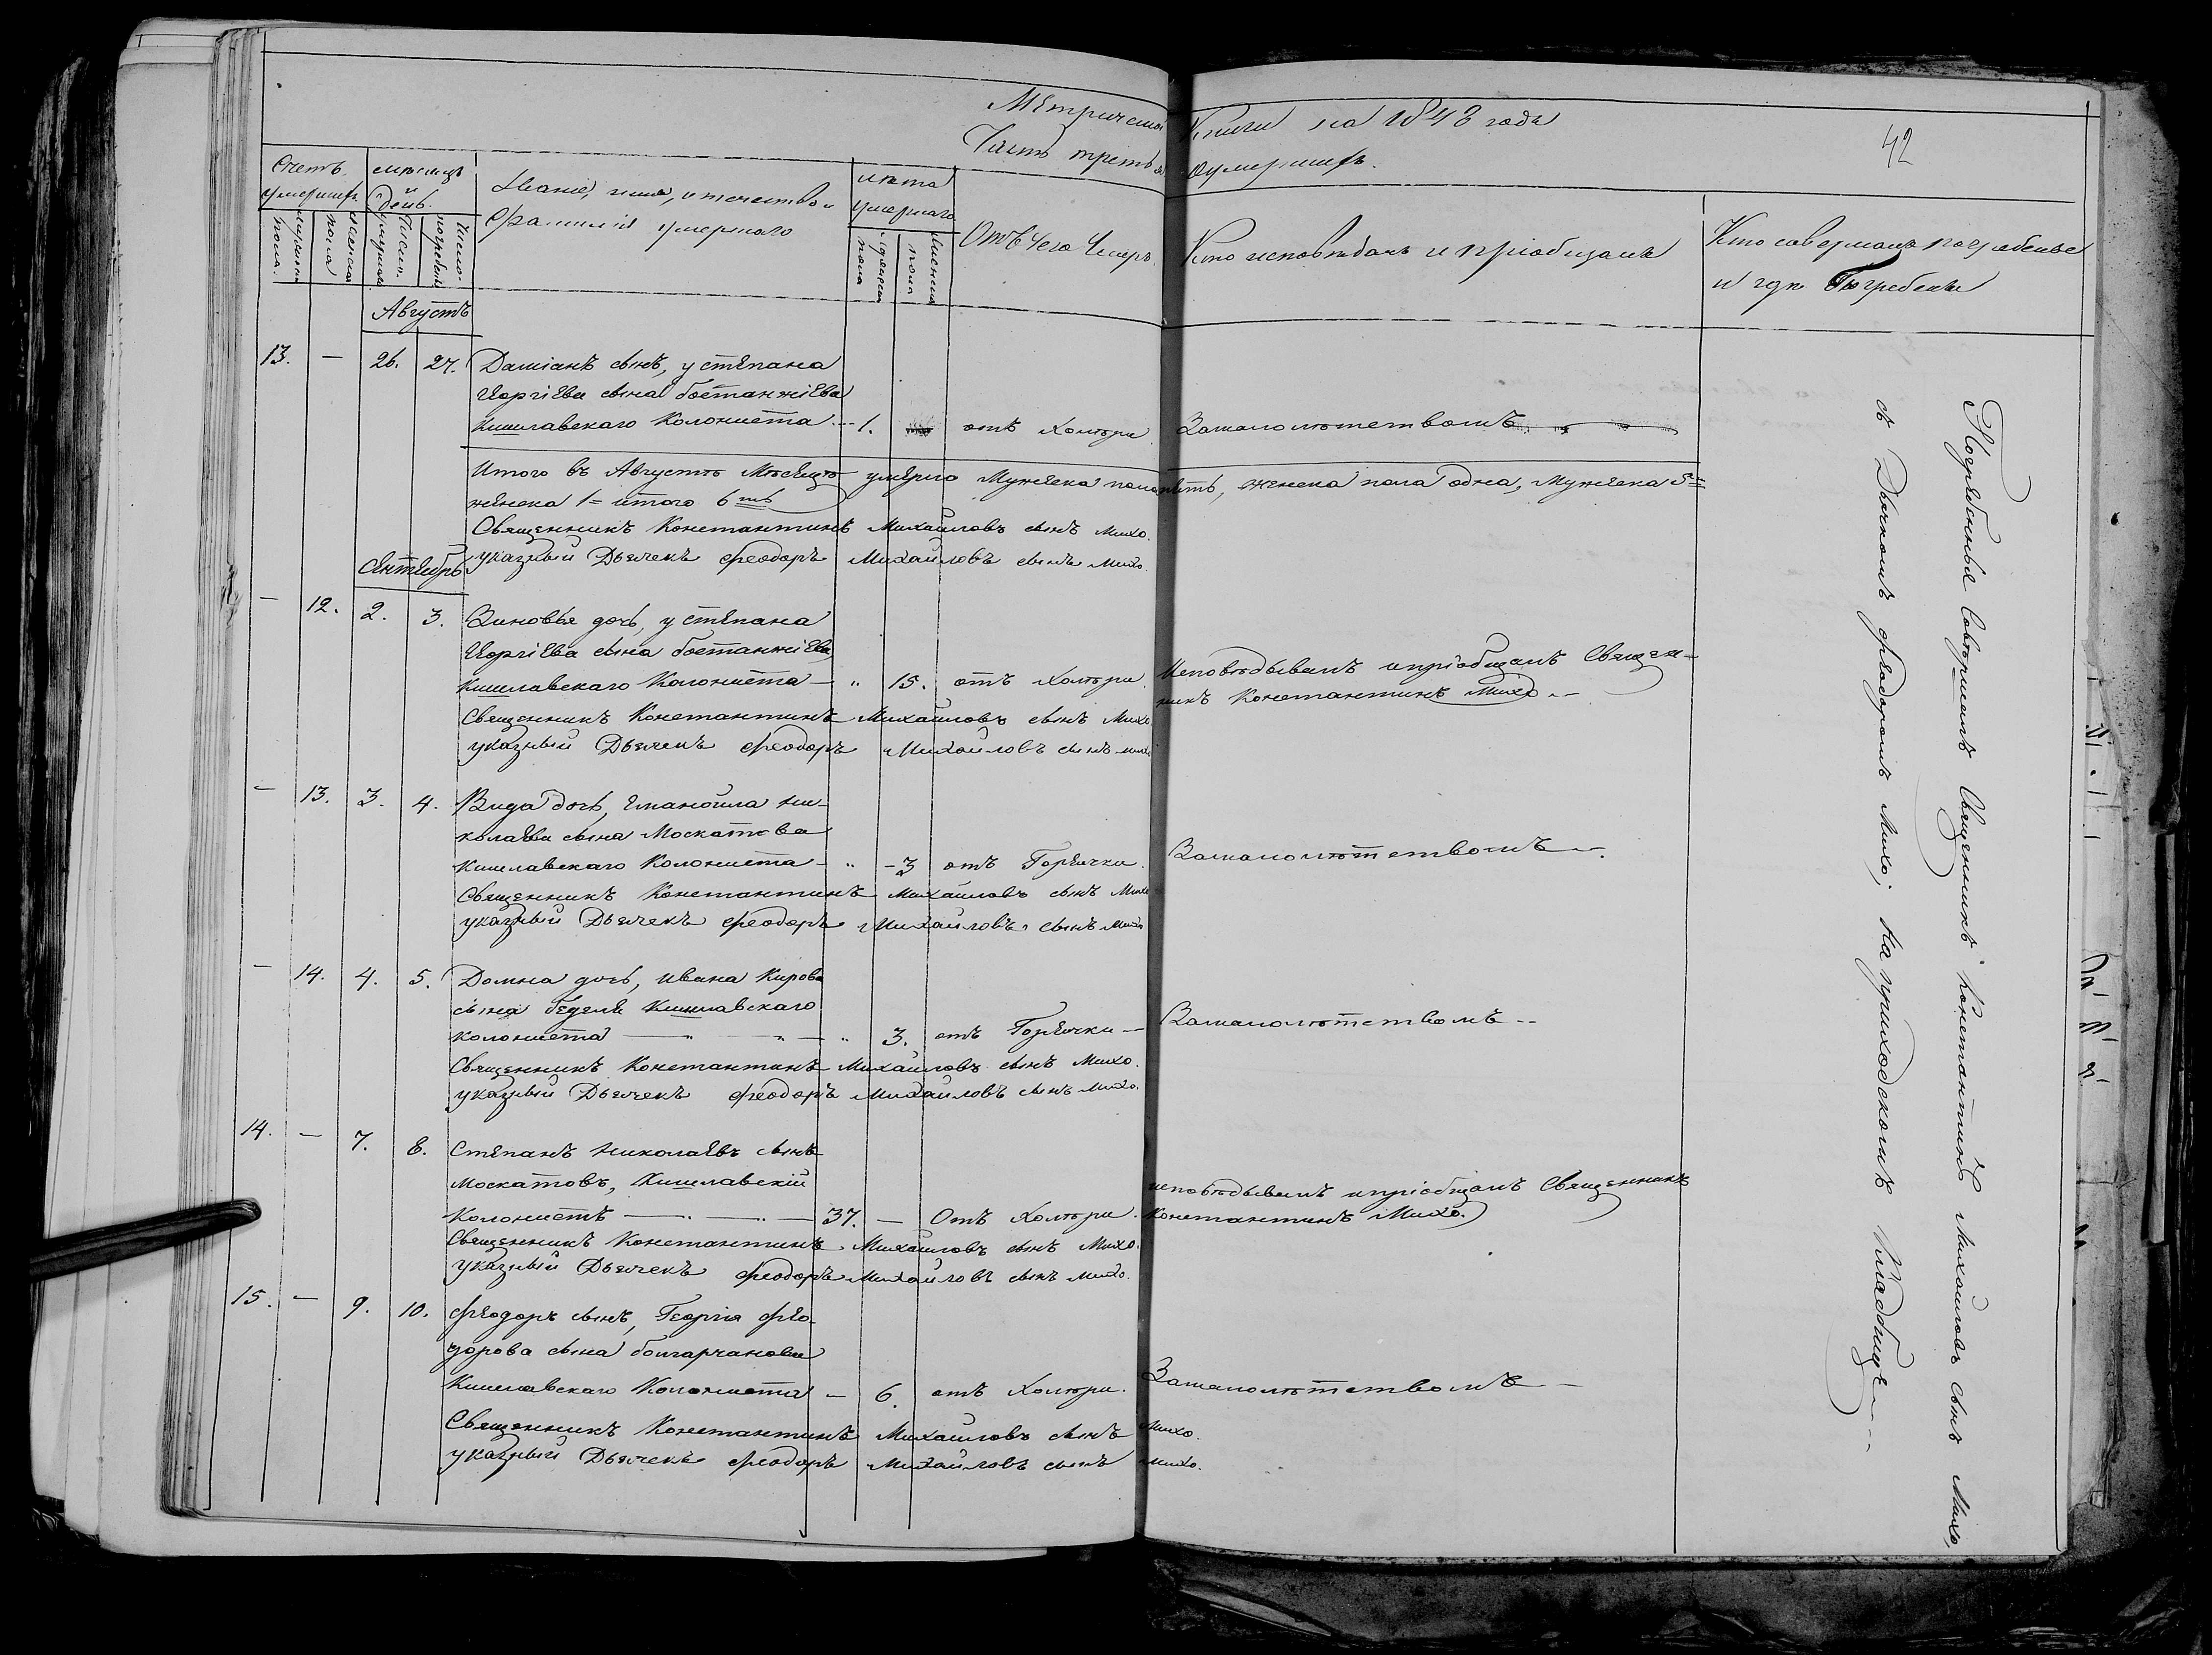 Метрической Книги на 1848 года
Часть третья оумершихъ.
42
Счетъ умершихъ
мужеска пола
женска пола
месяцъ и день.
Число умершихъ
Число погребенія
Званіе, имя, отечество и
фамилія умершаго
лета умершаго
мужеска пола
женска пола
Отъ чего умеръ.
Кто исповѣдалъ и пріобщалъ
Кто совершалъ погребенье
и где Погребены
Августъ
13. — 26. 27. Даміанъ сынъ, у степана
Георгіева сына бостанжіева
Кишлавскаго Колониста 1. отъ Холѣри. Замалолѣтствомъ
Итого въ Августѣ Мѣсяцѣ умерло Мужеска пола пять, женска пола одна, Мужеска 5=
женска 1= итого 6ть
Священникъ Константинъ Михаиловъ сынъ Михо.
указный Дьячекъ Феодоръ Михайловъ сынъ Михо.
Сентебрь
— 12. 2. 3. Зиновья дочь, у степана
Георгіева сына бостанжіева
Кишлавскаго Колониста — " 15. отъ Холѣри. Исповѣдывалъ и пріобщалъ Священ-
никъ Константинъ Михо —
Священникъ Константинъ Михаиловъ сынъ Михо
указный Дьячекъ Феодоръ Михайловъ сынъ михо
— 13. 3. 4. Вида дочь, Еманоила Ни-
колаева сына Москатова
Кишлавскаго Колониста — " - 3 отъ Горячки. Замалолѣтствомъ —.
Священникъ Константинъ Михаиловъ сынъ Михо
указный Дьячекъ Феодоръ Михайловъ сынъ Михо
— 14. 4. 5. Домна дочь, Ивана Кирова
сына беделѣ Кишлавскаго
колониста — " — " — " 3. отъ Горячки — Замалолѣтствомъ --
Священникъ Константинъ Михаиловъ сынъ Михо.
указный Дьячекъ Феодоръ Михайловъ сынъ Михо.
14. — 7. 8. Степанъ Николаевъ сынъ
Москатовъ, Кишлавскій
Колонистъ — " — " — 37. — Отъ Холѣри. исповѣдывалъ и пріобщалъ Священникъ
Константинъ Михо.
Священникъ Константинъ Михаиловъ сынъ Михо.
Указный Дьячекъ Феодоръ Михайловъ сынъ Михо.
15. — 9. 10. Феодоръ сынъ, Георгія Фео-
дорова сына болгарчанова
Кишлавскаго Колониста — 6. отъ Холѣри. Замалолѣтствомъ —
Священникъ Константинъ Михаиловъ сынъ Михо.
указный Дьячекъ Феодоръ Михайловъ сынъ Михо.
Погребенья Совершилъ Священникъ Константинъ Михайловъ сынъ Михо,
съ Дьячкомъ Феодоромъ Михо; На приходскомъ Кладбище